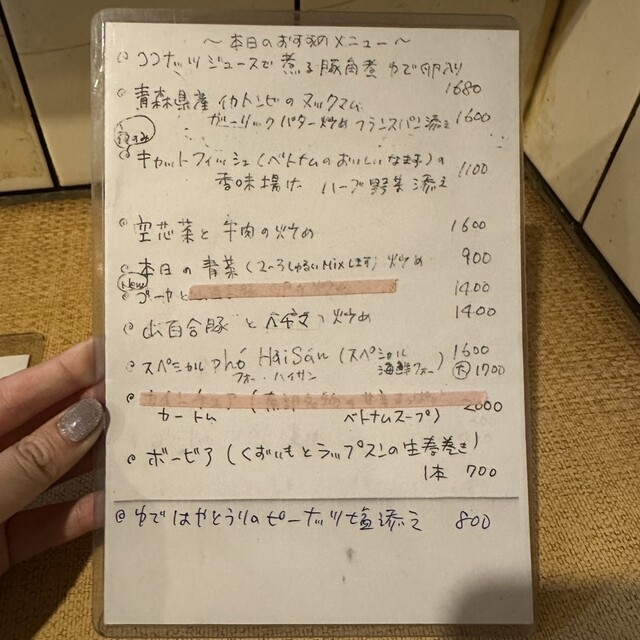 ～本日のおすすめメニュー～
ココナッツジュースで煮る豚角煮 ゆで卵入り
1680
青森県産 イカトンビのヌックマム
ガーリックバター炒め フランスパン添え 1600
キャットフィッシュ(ベトナムのおいしいなまず)の
香味揚げ ハーブ野菜添え 1100
空芯菜と牛肉の炒め 1600
本日の青菜(2〜3しゅるいMixします)炒め 900
New
ゴーヤと 1400
山百合豚と 炒め 1400
スペシャル Phở Hải Sản (スペシャル 1600
フォー・ハイサン 海鮮フォー) 大 1700
2000
カートム ベトナムスープ)
ボービア(くずいもとラップスンの生春巻き)
1本 700
ゆではやとうりのピーナッツ塩添え 800